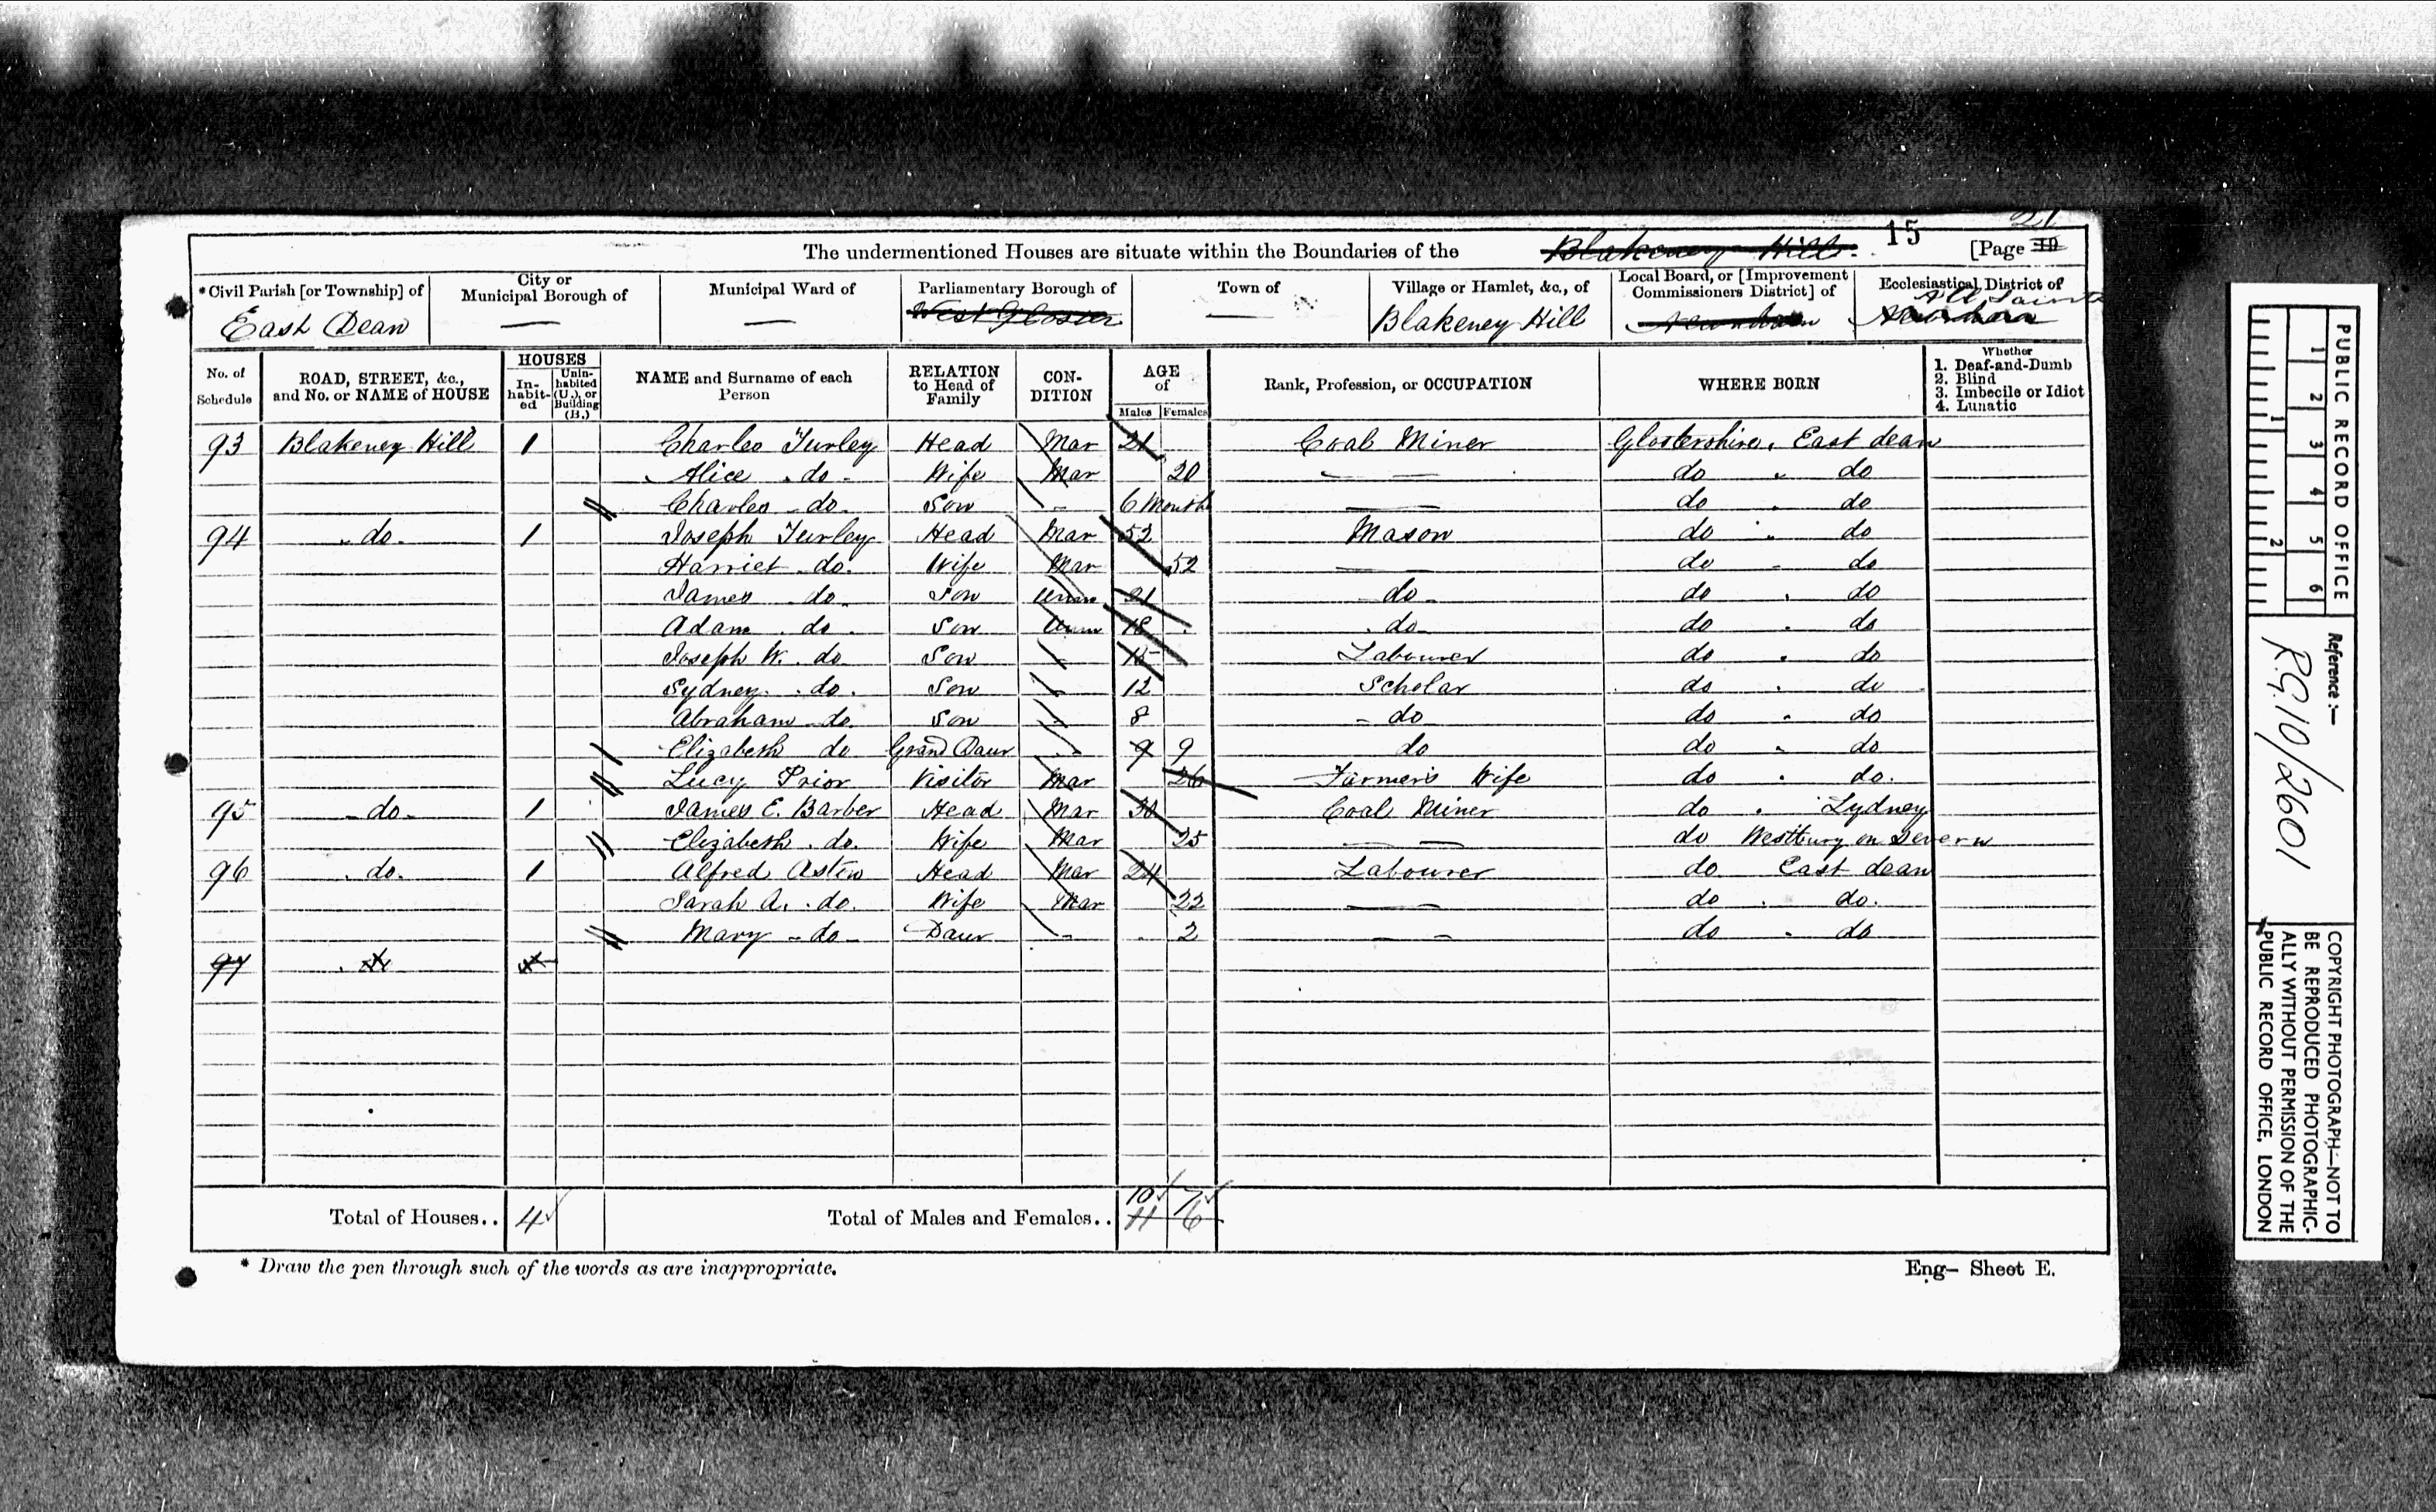 The undermentioned Houses are situate within the Boundaries of the Blakeney Hill. 15 [Page 10 21
*Civil Parish [or Township] of City or Municipal Borough of Municipal Ward of Parliamentary Borough of Town of Village or Hamlet, &c., of Local Board, or [Improvement Commissioners District] of Ecclesiastical District of
East Dean — — West Gloster — Blakeney Hill Newnham All Saints
No. of Schedule ROAD, STREET, &c., and No. or NAME of HOUSE HOUSES In-habit-ed Unin-habited (U.), or Building (B.) NAME and Surname of each Person RELATION to Head of Family CON-DITION AGE of Males Females Rank, Profession, or OCCUPATION WHERE BORN Whether 1. Deaf-and-Dumb 2. Blind 3. Imbecile or Idiot 4. Lunatic
93 Blakeney Hill 1 Charles Turley Head Mar 21 Coal Miner Glostershire, East dean
Alice do Wife Mar 20 — do do
Charles do Son - 6 Months — do do
94 do 1 Joseph Turley Head Mar 52 Mason do do
Harriet do. Wife Mar 52 — do do
James do Son Unm 21 do do do
Adam do Son Unm 18 do do do
Joseph W. do Son 15 Labourer do do
Sydney do. Son 12 Scholar do do
Abraham do Son 8 do do do
Elizabeth do Grand Daur 9 9 do do do
Lucy Prior Visitor Mar 26 Farmer's Wife do do.
95 do 1 James E. Barber Head Mar 30 Coal Miner do Lydney
Elizabeth do. Wife Mar 25 — do Westbury on Severn
96 do. 1 Alfred Aston Head Mar 24 Labourer do East dean
Sarah A. do. Wife Mar 22 — do do.
Mary do Daur - 2 — do do
97
Total of Houses.. 4 Total of Males and Females.. 10 7
11 6
* Draw the pen through such of the words as are inappropriate.
Eng- Sheet E.
PUBLIC RECORD OFFICE
1 2 3 4 5 6
1 2
Reference:-
R.G. 10/2601
COPYRIGHT PHOTOGRAPH—NOT TO
BE REPRODUCED PHOTOGRAPHIC-
ALLY WITHOUT PERMISSION OF THE
PUBLIC RECORD OFFICE, LONDON